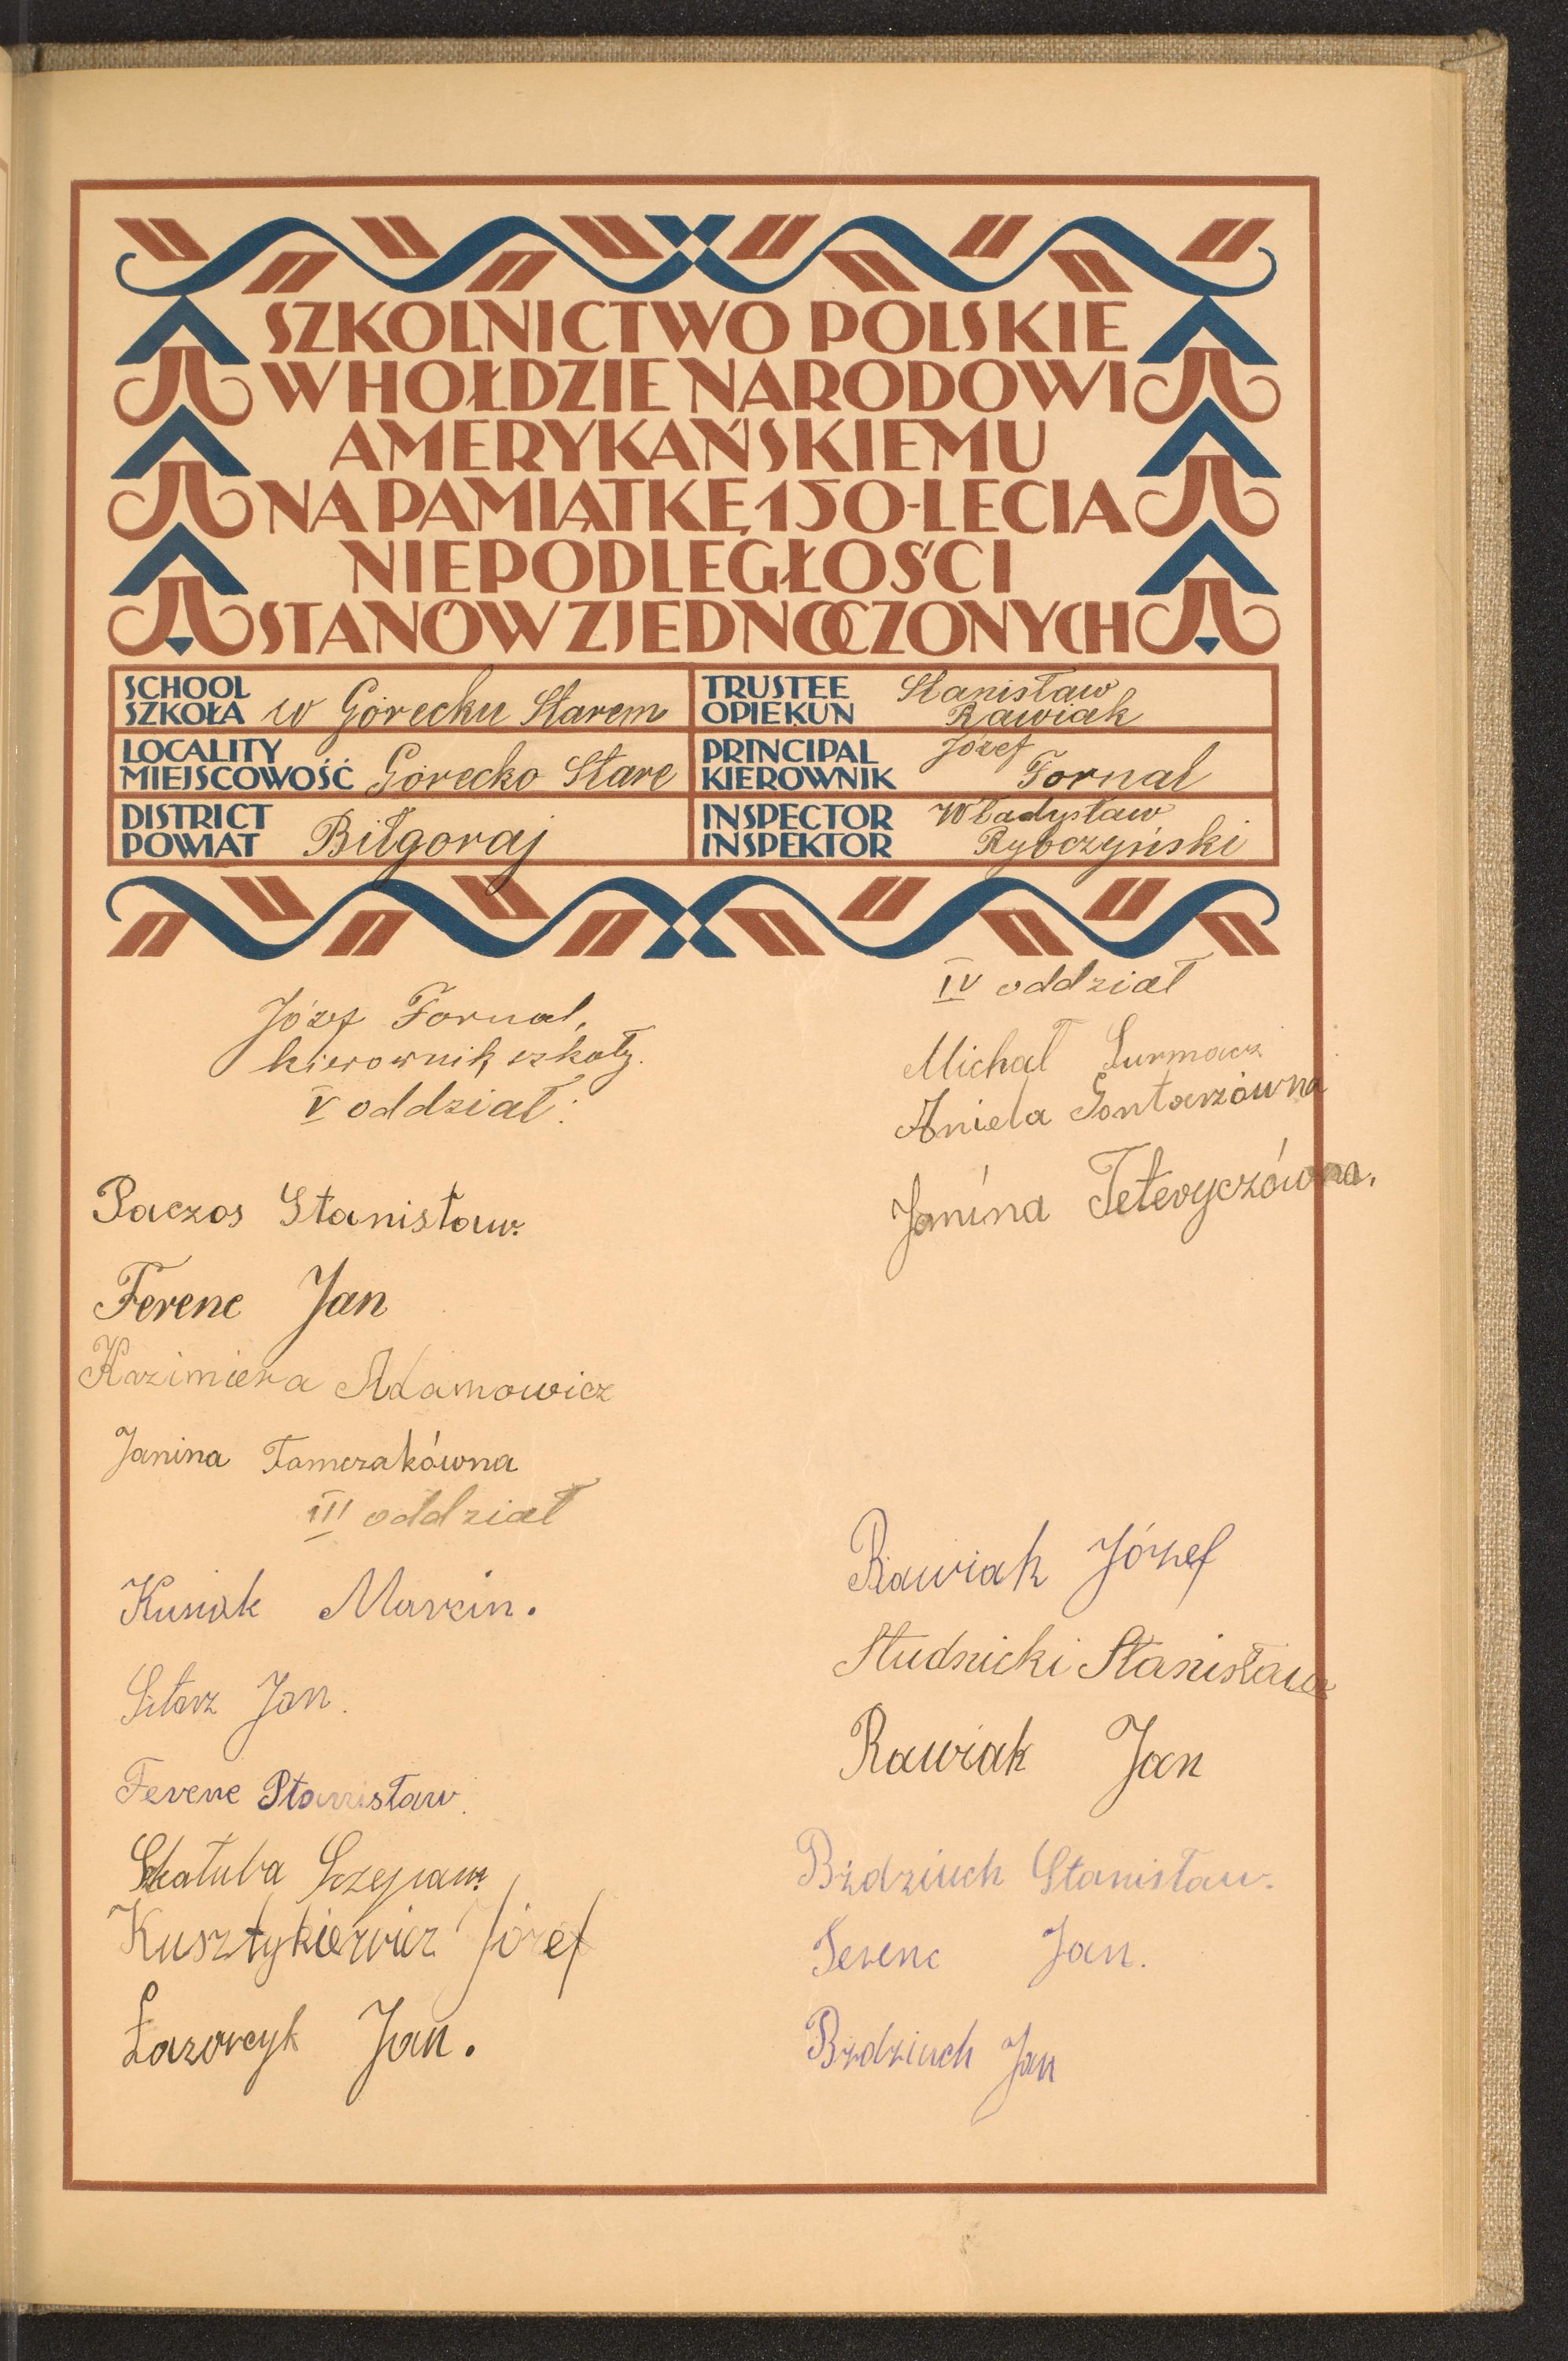 SZKOLNICTWO POLSKIE
W HOŁDZIE NARODOWI
AMERYKAŃSKIEMU
NA PAMIĄTKĘ 150-LECIA
NIEPODLEGŁOŚCI
STANÓW ZJEDNOCZONYCH
SCHOOL
SZKOŁA w Górecku Starem
TRUSTEE
OPIEKUN Stanisław Rawiak
LOCALITY
MIEJSCOWOŚĆ Górecko Stare
PRINCIPAL
KIEROWNIK Józef Fornal
DISTRICT
POWIAT Biłgoraj
INSPECTOR
INSPEKTOR Władysław Rybczyński
Józef Fornal,
kierownik szkoły.
V oddział:
Paczos Stanisław.
Ferenc Jan
Kazimiera Adamowicz
Janina Tomczakówna
IV oddział
Michał Surmacz
Aniela Gontarzówna
Janina Teteryczówna.
III oddział
Kusiak Marcin.
Sitarz Jan.
Ferenc Stanisław.
Skałuba
Kusztykiewicz Józef
Łazorcyk Jan.
Rawiak Józef
Studnicki Stanisław
Rawiak Jan
Bździuch Stanisław.
Ferenc Jan.
Bździuch Jan